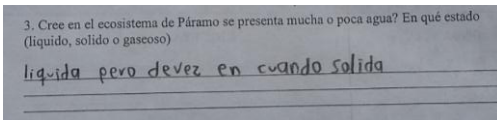 3. Cree en el ecosistema de Páramo se presenta mucha o poca agua? En qué estado
(liquido, solido o gaseoso)
liquida pero devez en cuando solida